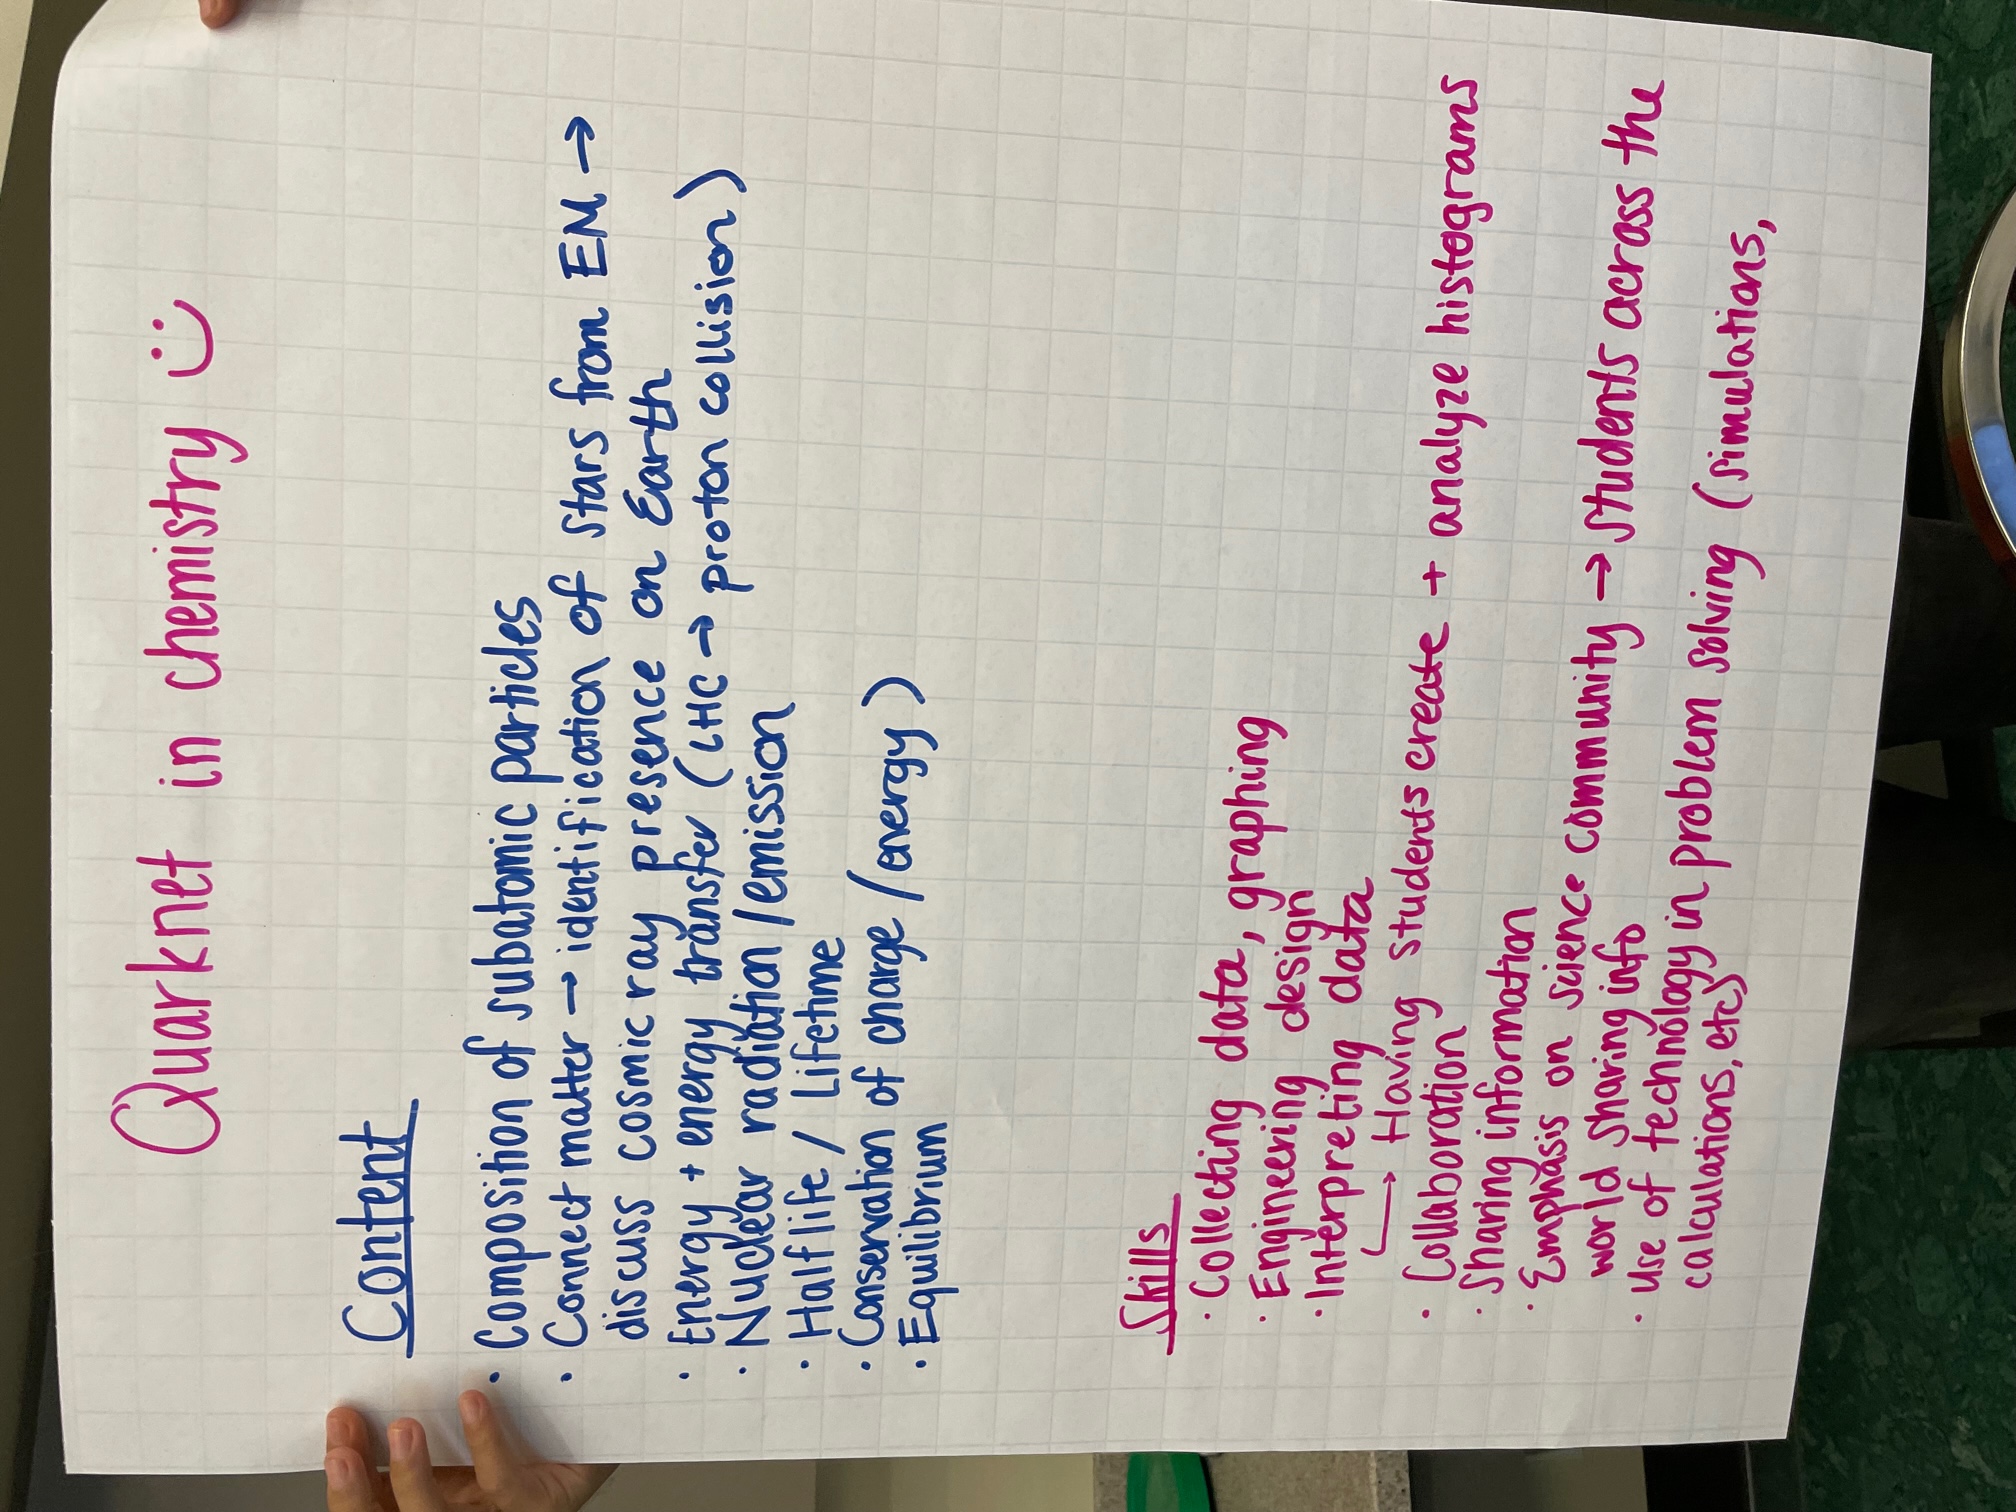 Quarknet in chemistry :)
Content
• Composition of subatomic particles
• Connect matter → identification of stars from EM →
discuss cosmic ray presence on Earth
• Energy + energy transfer (LHC → proton collision)
• Nuclear radiation/emission
• Half life / Lifetime
• Conservation of charge /(energy)
• Equilibrium
Skills
• Collecting data, graphing
• Engineering design
• Interpreting data
↳ Having students create + analyze histograms
• Collaboration
• Sharing information
• Emphasis on science community → students across the
world sharing info
• Use of technology in problem solving (simulations,
calculations, etc)